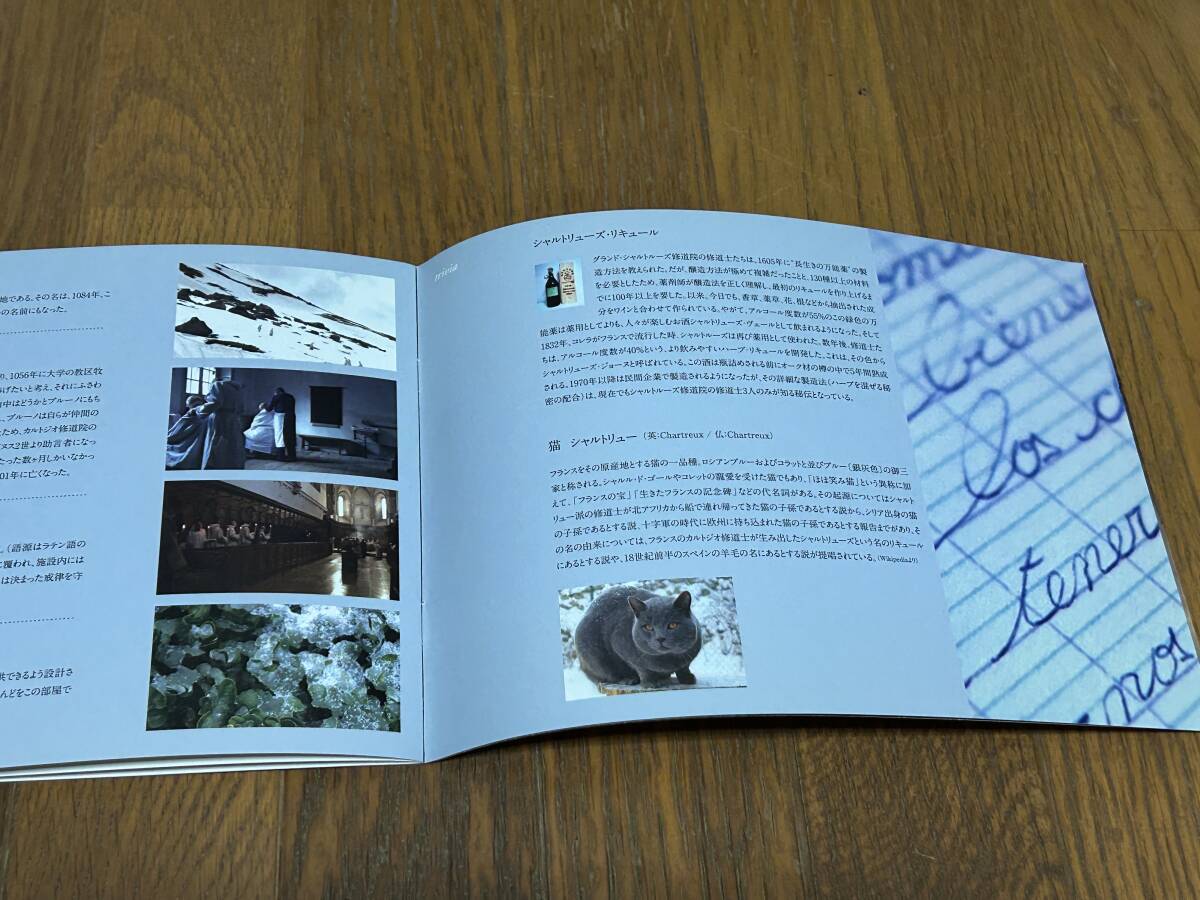 地である。その名は、1084年、こ
の名前にもなった。
り、1056年に大学の教区牧
げたいと考え、それにふさわ
中はどうかとブルーノにもち
、ブルーノは自らが仲間の
ため、カルトジオ修道院の
ヌス2世より助言者になっ
たった数ヶ月しかいなかっ
01年に亡くなった。
(語源はラテン語の
に覆われ、施設内には
は決まった戒律を守
供できるよう設計さ
んどをこの部屋で
trivia
シャルトリューズ・リキュール
グランド・シャルトルーズ修道院の修道士たちは、1605年に"長生きの万能薬"の製
造方法を教えられた。だが、醸造方法が極めて複雑だったことと、130種以上の材料
を必要としたため、薬剤師が醸造法を正しく理解し、最初のリキュールを作り上げるま
でに100年以上を要した。以来、今日でも、香草、薬草、花、根などから抽出された成
分をワインと合わせて作られている。やがて、アルコール度数が55%のこの緑色の万
能薬は薬用としてよりも、人々が楽しむお酒シャルトリューズ・ヴェールとして飲まれるようになった。そして
1832年、コレラがフランスで流行した時、シャルトルーズは再び薬用として使われた。数年後、修道士た
ちは、アルコール度数が40%という、より飲みやすいハーブ・リキュールを開発した。これは、その色から
シャルトリューズ・ジョーヌと呼ばれている。この酒は瓶詰めされる前にオーク材の樽の中で5年間熟成
される。1970年以降は民間企業で製造されるようになったが、その詳細な製造法(ハーブを混ぜる秘
密の配合)は、現在でもシャルトルーズ修道院の修道士3人のみが知る秘伝となっている。
猫 シャルトリュー (英:Chartreux / 仏:Chartreux)
フランスをその原産地とする猫の一品種。ロシアンブルーおよびコラットと並びブルー(銀灰色)の御三
家と称される。シャルル・ド・ゴールやコレットの寵愛を受けた猫でもあり、「ほほ笑み猫」という異称に加
えて、「フランスの宝」「生きたフランスの記念碑」などの代名詞がある。その起源についてはシャルト
リュー派の修道士が北アフリカから船で連れ帰ってきた猫の子孫であるとする説から、シリア出身の猫
の子孫であるとする説、十字軍の時代に欧州に持ち込まれた猫の子孫であるとする報告まであり、そ
の名の由来については、フランスのカルトジオ修道士が生み出したシャルトリューズという名のリキュール
にあるとする説や、18世紀前半のスペインの羊毛の名にあるとする説が提唱されている。(Wikipediaより)
los c
temer
nos